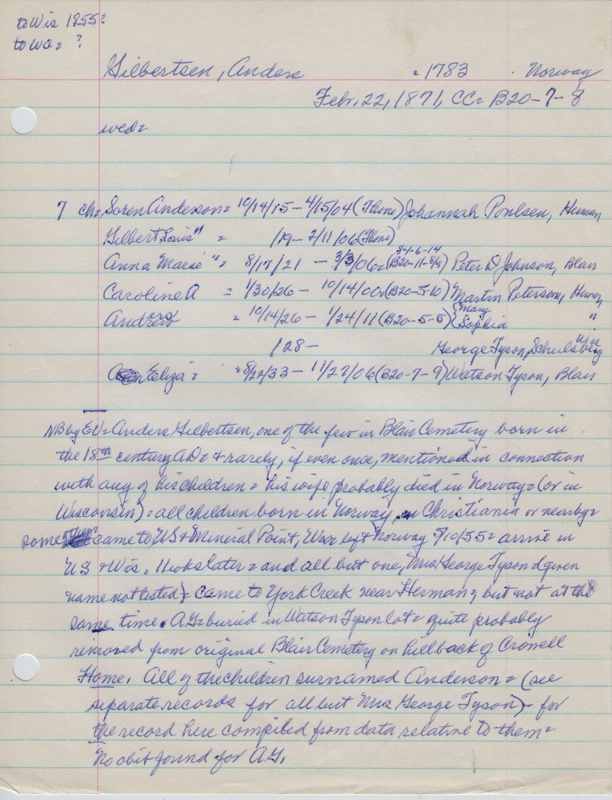 to Wis 1855?
to WO = ?
Gilbertsen, Anders = 1783 . Norway
Febr. 22, 1871, CC = B20-7-8
wed =
7 ch = Soren Anderson = 10/14/15 - 4/15/04 (Tbone) Johannah Poulsen, Herman
Gilbert Louis " = /19 - 2/11/06 (Tbone)
84-6-14
Anna Marie " = 8/17/21 - 3/3/06 = (B20-11-8/9) Peter D Johnson, Blair
Caroline A = 1/30/26 - 10/14/00 = (B20-5-10) Martin Peterson, Herman
Andrew = 10/14/26 - 1/24/11 (B20-5-5) { Mary
Sophia "
/28 - George Tyson, Schulsberg Wis
Eliza = = 8/22/33 - 11/27/06 (B20-7-9) Watson Tyson, Blair
NB by EV = Anders Gilbertsen, one of the few in Blair Cemetery born in
the 18th century AD = & rarely, if even once, mentioned in connection
with any of his children = his wife probably died in Norway = (or in
Wisconsin) = all children born in Norway, in Christiania or nearby =
some came to US & Mineral Point, Wis = left Norway 5/10/55 = arrive in
US & Wis = 11 wks later = and all but one, Mrs. George Tyson (given
name not listed) = came to York Creek near Herman, but not at the
same time. A.G. = buried in Watson Tyson lot = quite probably
removed from original Blair Cemetery on hill back of Crowell
Home. All of the children surnamed Anderson = (see
separate records for all but Mrs George Tyson) = for
the record here compiled from data relative to them =
No obit found for A.G.